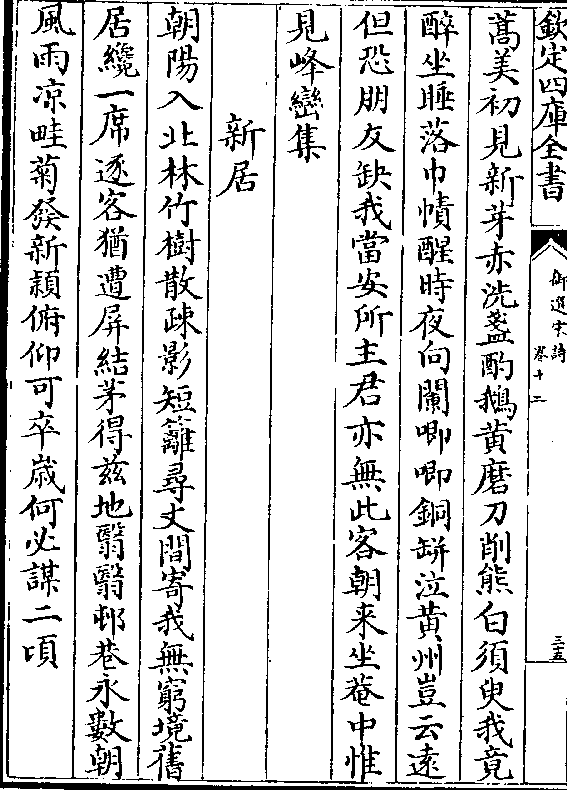 欽定四庫全書
御選宋詩
卷十二
三五
蒿美初見新芽赤洗盞酌鵝黃磨刀削熊白須臾我竟
醉坐睡落巾幘醒時夜向闌唧唧銅缾泣黃州豈云遠
但恐朋友缺我當安所主君亦無此客朝来坐菴中惟
見峰巒集
新居
朝陽入北林竹樹散疎影短籬尋丈間寄我無窮境舊
居纔一席逐客猶遭屏結茅得兹地翳翳邨巷永數朝
風雨凉畦菊發新穎俯仰可卒歲何必謀二頃